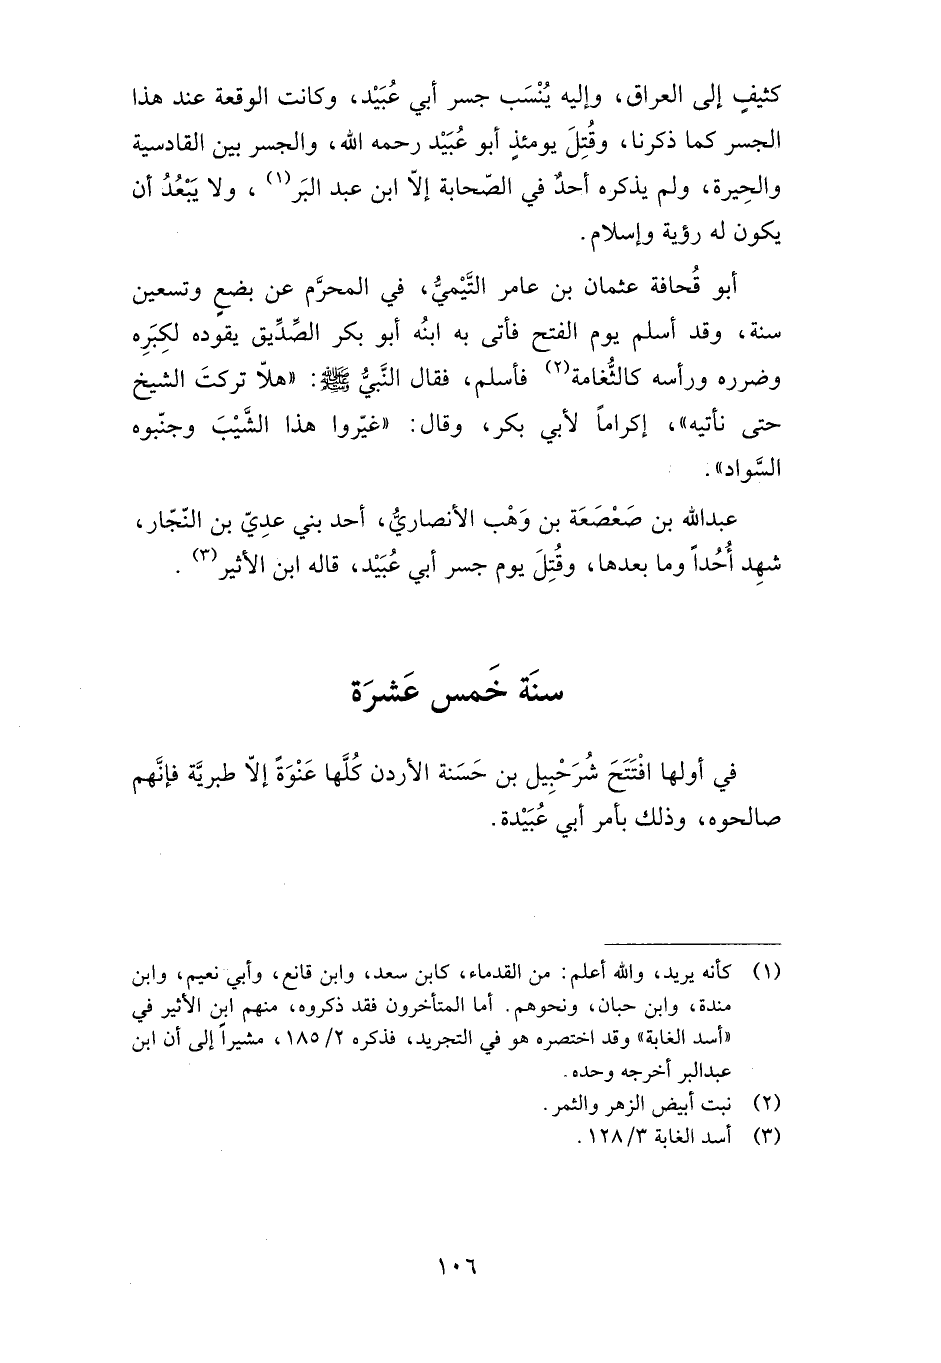 كثيفٍ إلى العراق، وإليه يُنْسَب جسر أبي عُبَيْد، وكانت الوقعة عند هذا
الجسر كما ذكرنا، وقُتِلَ يومئذٍ أبو عُبَيْد رحمه الله، والجسر بين القادسية
والحِيرة، ولم يذكره أحدٌ في الصّحابة إلاّ ابن عبد البَر(١)، ولا يَبْعُدُ أن
يكون له رؤية وإسلام.
أبو قُحافة عثمان بن عامر التَّيْميُّ، في المحرَّم عن بضعٍ وتسعين
سنة، وقد أسلم يوم الفتح فأتى به ابنُه أبو بكر الصِّدِّيق يقوده لكِبَرِه
وضرره ورأسه كالثُّغامة(٢) فأسلم، فقال النَّبيُّ ﷺ: «هلاّ تركتَ الشيخ
حتى نأتيه»، إكراماً لأبي بكر، وقال: «غيّروا هذا الشَّيْبَ وجنّبوه
السَّواد».
عبدالله بن صَعْصَعَة بن وَهْب الأنصاريُّ، أحد بني عدِيّ بن النّجّار،
شهِد أُحُداً وما بعدها، وقُتِلَ يوم جسر أبي عُبَيْد، قاله ابن الأثير(٣).
سنَة خَمس عَشرَة
في أولها افْتَتَحَ شُرَحْبِيل بن حَسَنة الأردن كُلَّها عَنْوَةً إلاّ طبريَّة فإنَّهم
صالحوه، وذلك بأمر أبي عُبَيْدة.
(١) كأنه يريد، والله أعلم: من القدماء، كابن سعد، وابن قانع، وأبي نعيم، وابن
مندة، وابن حبان، ونحوهم. أما المتأخرون فقد ذكروه، منهم ابن الأثير في
«أسد الغابة» وقد اختصره هو في التجريد، فذكره ٢/ ١٨٥، مشيراً إلى أن ابن
عبدالبر أخرجه وحده.
(٢) نبت أبيض الزهر والثمر.
(٣) أسد الغابة ٣/ ١٢٨.
١٠٦